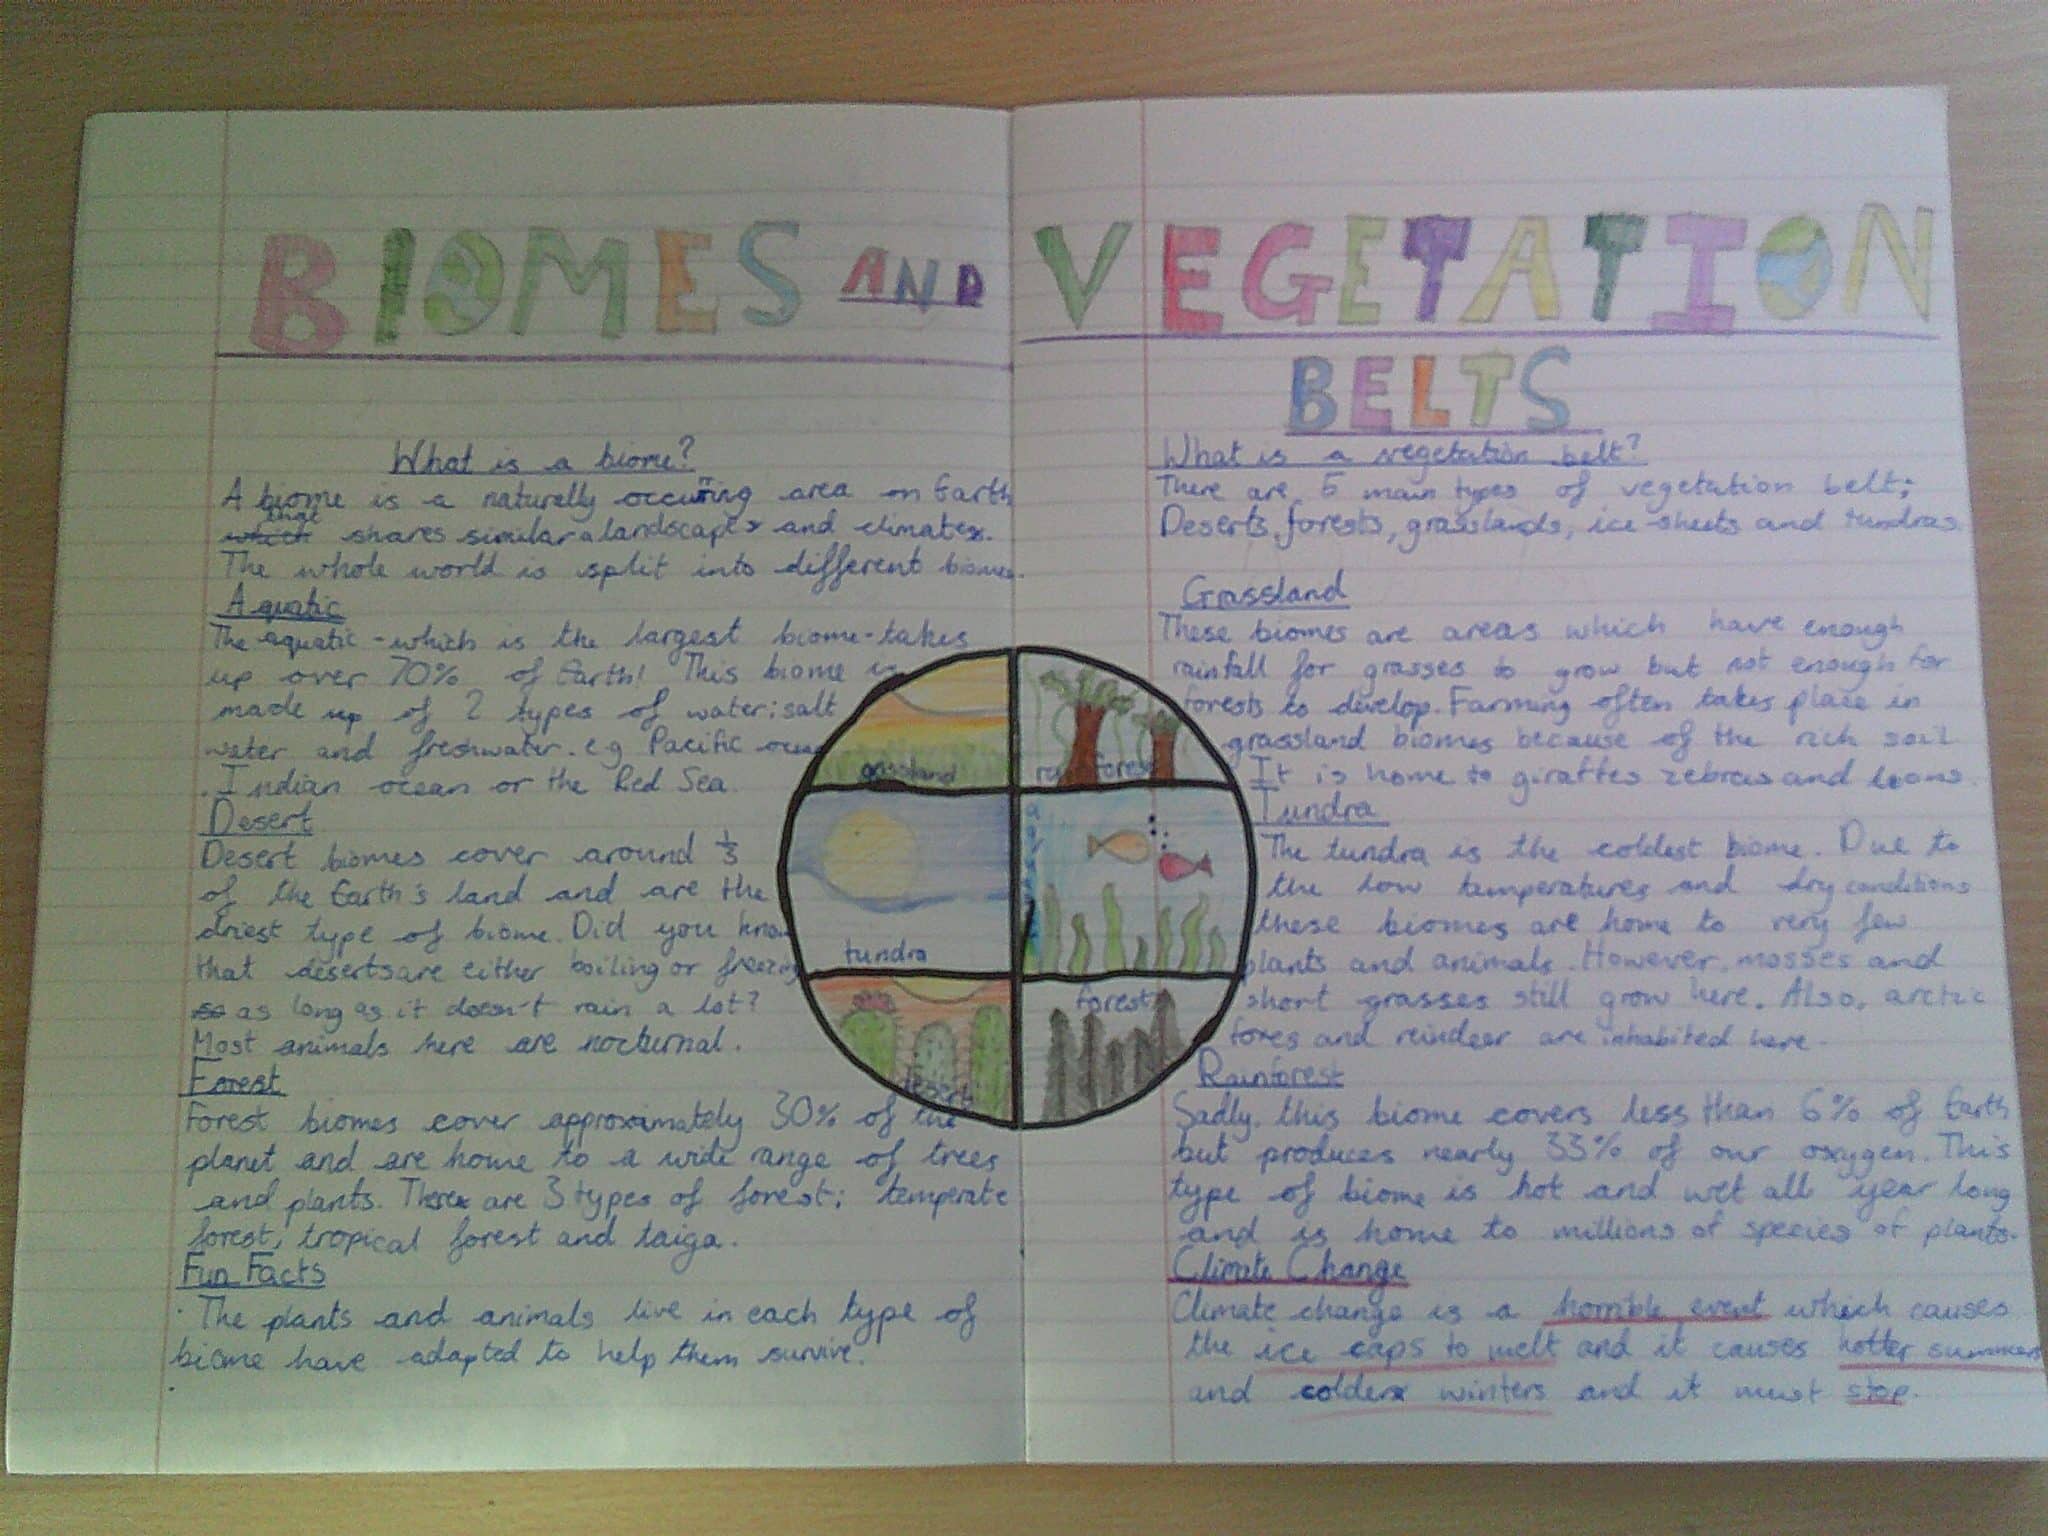 BIOMES AND VEGETATION
BELTS
What is a biome?
A biome is a naturally occurring area on Earth
that
which shares similar landscapes and climates.
The whole world is split into different biomes.
Aquatic
The aquatic - which is the largest biome - takes
up over 70% of Earth! This biome is
made up of 2 types of water; salt
water and freshwater. eg Pacific ocean
. Indian ocean or the Red Sea.
Desert
Desert biomes cover around 1/3
of the Earth's land and are the
driest type of biome. Did you know
that deserts are either boiling or freezing
so as long as it doesn't rain a lot?
Most animals here are nocturnal.
Forest
Forest biomes cover approximately 30% of the
planet and are home to a wide range of trees
and plants. There are 3 types of forest; temperate
forest, tropical forest and taiga.
Fun Facts
· The plants and animals live in each type of
biome have adapted to help them survive.
grassland
rainforest
tundra
desert
forest
What is a vegetation belt?
There are 5 main types of vegetation belt;
Deserts, forests, grasslands, ice-sheets and tundras
Grassland
These biomes are areas which have enough
rainfall for grasses to grow but not enough for
forests to develop. Farming often takes place in
grassland biomes because of the rich soil
It is home to giraffes zebras and lions.
Tundra
The tundra is the coldest biome. Due to
the low temperatures and dry conditions
these biomes are home to very few
plants and animals. However, mosses and
short grasses still grow here. Also, arctic
foxes and reindeer are inhabited here.
Rainforest
Sadly, this biome covers less than 6% of Earth
but produces nearly 33% of our oxygen. This
type of biome is hot and wet all year long
and is home to millions of species of plants.
Climate Change
Climate change is a horrible event which causes
the ice caps to melt and it causes hotter summers
and colder winters and it must stop.